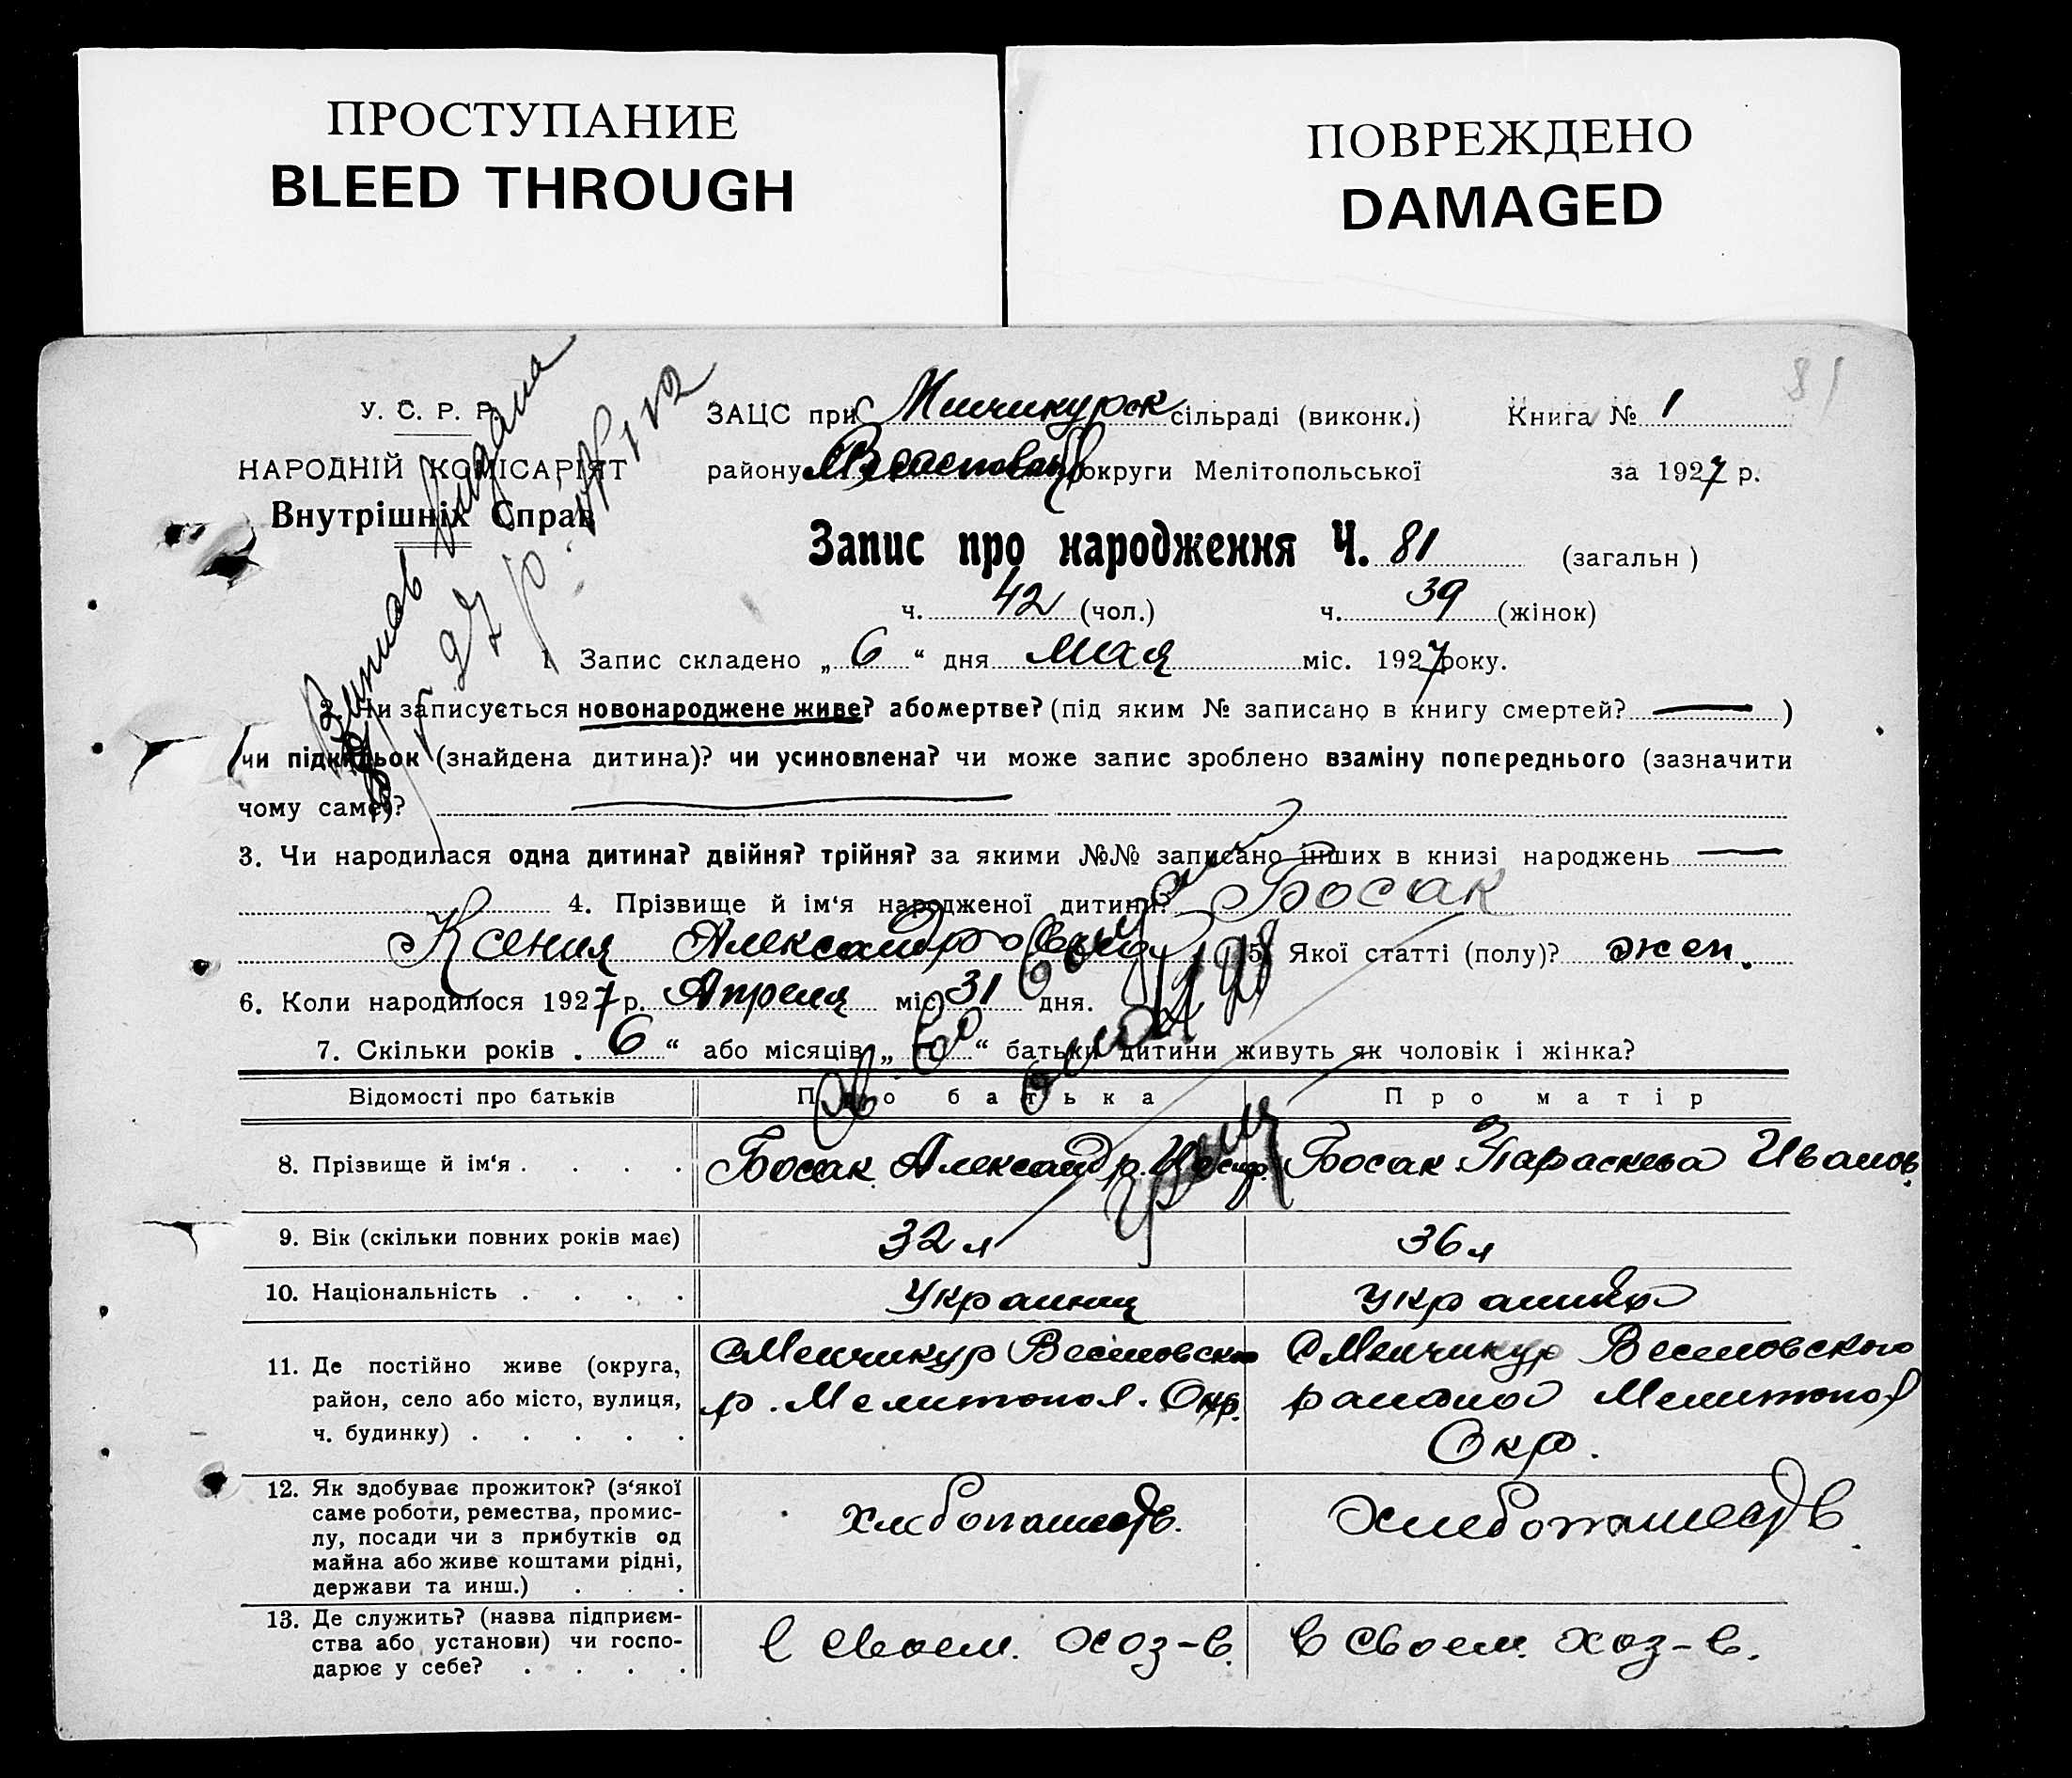 ПРОСТУПАНИЕ
BLEED THROUGH
ПОВРЕЖДЕНО
DAMAGED
81
У. С. Р. Р.
НАРОДНІЙ КОМІСАРІЯТ
Внутрішніх Справ
ЗАЦС при Минчикурск сільраді (виконк.) Книга № 1
району округи Мелітопольської за 1927 р.
Запис про народження Ч. 81 (загальн)
ч. 42 (чол.) ч. 39 (жінок)
1. Запис складено „ 6 “ дня мая міс. 1927 року.
2. Чи записується новонароджене живе? або мертве? (під яким № записано в книгу смертей? — )
чи підкидьок (знайдена дитина)? чи усиновлена? чи може запис зроблено взаміну попереднього (зазначити
чому саме)?
3. Чи народилася одна дитина? двійня? трійня? за якими №№ записано інших в книзі народжень —
4. Прізвище й ім‘я народженої дитини? Босак
Ксения Александровна 5. Якої статті (полу)? жен.
6. Коли народилося 1927 р. Апреля міс. 31 дня.
7. Скільки років „ 6 “ або місяців „ “ батьки дитини живуть як чоловік і жінка?
Відомості про батьків Про батька Про матір
8. Прізвище й ім‘я . . . . Босак Александр Иосиф. Босак Параскева Иванов.
9. Вік (скільки повних років має) 32 л 36 л
10. Національність . . . . Украинец Украинка
11. Де постійно живе (округа, район, село або місто, вулиця, ч. будинку) . . . . .
с Менчикур Веселовско
р. Мелитопол. Окр.
с Менчикур Веселовского
района Мелитопол
Окр.
12. Як здобуває прожиток? (з‘якої
саме роботи, ремества, промис-
лу, посади чи з прибутків од
майна або живе коштами рідні,
держави та инш.) . . .
Хлебопашеств.
Хлебопашеств.
13. Де служить? (назва підприєм-
ства або установи) чи госпо-
дарює у себе? . . . .
в своем. хоз-в.
в своем. хоз-в.